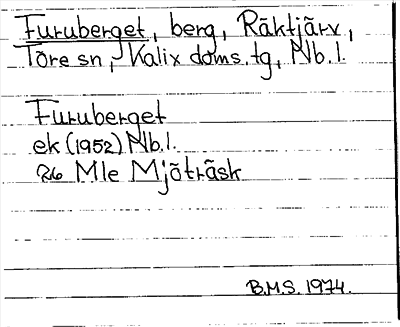 Furuberget, berg, Räktjärv,
Töre sn, Kalix doms.tg, Nb.l.
Furuberget
ek (1952) Nb.l.
26 Mle Mjöträsk
B.M.S. 1974.